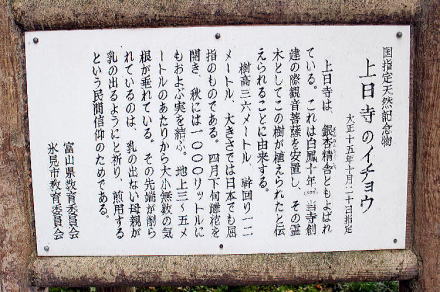 国指定天然記念物
上日寺のイチョウ
大正十五年十月二十日指定
上日寺は、銀杏精舎ともよばれ
ている。これは白鳳十年、当寺創
建の際観音菩薩を安置し、その霊
木としてこの樹が植えられたと伝
えられることに由来する。
樹高三六メートル、幹回り一二
メートル、大きさでは日本でも屈
指のものである。四月下旬雌花を
開き、秋には一〇〇〇リットルに
もおよぶ実を結ぶ。地上三～五メ
ートルのあたりから大小無数の気
根が垂れている。その先端が削ら
れているのは、乳の出ない母親が
乳の出るようにと祈り、煎用する
という民間信仰のためである。
富山県教育委員会
氷見市教育委員会